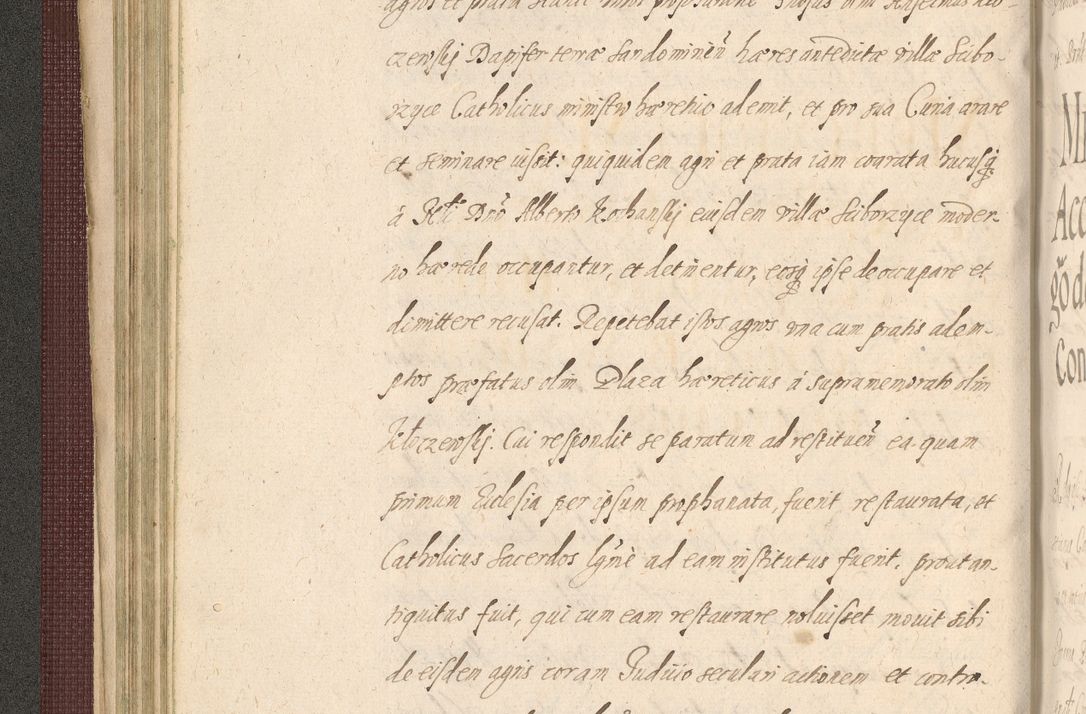 agros et prata
czewskij Dapifer terræ Sandominẽn hæres antedictæ villæ Scibo-
rzyce Catholicus ministro hæretico ademit, et pro sua Curia arare
et seminare iussit: quiquidem agri et prata iam coarata hucusq̃
á Dnõ Alberto Kochanskij eiusdem villæ Sciborzyce moder-
no hærede occupantur, et detinentur, eosq̃ ipse deoccupare et
dimittere recusat. Repetebat istos agros vna cum pratis adem-
ptos præfatus olim Plaza hæreticus á supramemorato olim
Kłoczewskij. Cui respondit se paratum ad restituen̄ ea quam
primum Ecclesia per ipsum prophanata, fuerit restaurata, et
Catholicus Sacerdos lgimè ad eam institutus fuerit, prout an-
tiquitus fuit, qui cum eam restaurare noluisset mouit sibi
de eisdem agris coram Judicio seculari actionem et contro-